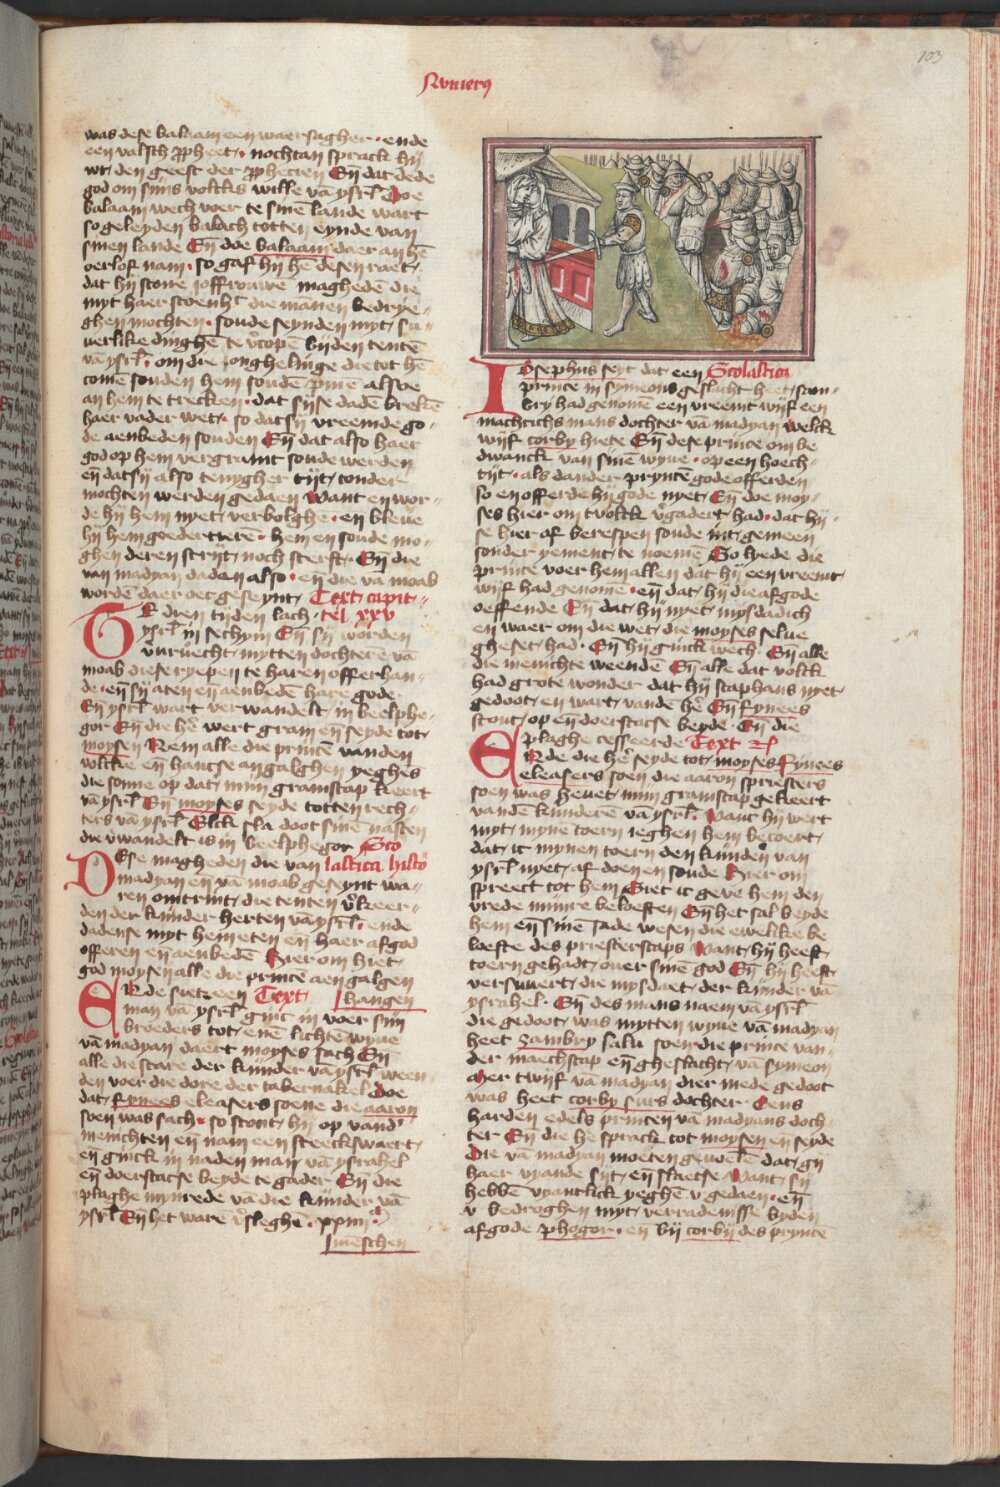 103
Numerꝰ
was dese balaam een waersagher · ende
een valsch ꝓpheet · nochtan sprack hij
wt den geest der ꝓphecien En̄ dat dede
god om sijns volcks wille vā ysrl̄ Doe
balaam wech voer te sinē lande wart
so geleyden balach totten eynde van
sinen lande En̄ doe balaam daer an hē
oerlof nam · so gaf hij hē desen raet
dat hij scone joffrouwe magheden die
myt haer scoenh̄t die mānen bedrye
ghen mochten · soude seynden myt su
uerlike dinghē te v̄copē bijden tentē
vā ysrl̄ · om die jonghelinge die tot hē
comē souden hem soude pinē alsoe
an hem te trecken · dat sijse dadē brekē
haer vader wet · so dat sij vreemde go
de aenbeden souden En̄ dat also haer
god op hem vergramt soude werden
en̄ dat sij also tenygher tijt tonder
mochten werden gedaen Want en wor
de hij hem nyet verbolghē · en bleue
hij hem goedertiere · hem en soude mo
ghen deren strijt noch sterft · En̄ die
van madyan dadan also · en̄ die vā moab
wordē daer oec geseynt Text capit
tel xxv
E dien tijden lach
ysrl̄ in sechym En̄ sij worden
v̄nruecht mytten dochterē vā
moab die seryepen te haren offerhan
de · en̄ sij aten en̄ aenbedē hare gode
En̄ ysrl̄ wart verwandelt in beelphe
gor En̄ die hē wert gram en̄ seyde tot
moysen Nem alle die princē vanden
volcke en̄ hantse an galghen yeghēs
die sonne op dat mijn gramscap keert
vā ysrl̄ En̄ moyses seyde totten rech
ters vā ysrl̄ Elck sla doot sinē nasten
die v̄wandelt is in beelphegor Sco
lastica histo
Dese magheden die van
madyan en̄ vā moab geseynt wa
ren omtrint die tenten v̄keer
den der kinder herten vā ysrl̄ · ende
dadense myt hem eten en̄ haer afgod
offeren en̄ aenbedē Hier om hiet
god moysen alle die princē aen galgen
hangen
Ende siet een Text
man vā ysrl̄ ginc in voer sijn
broeders tot enē lichtē wyue
vā madyan daert moyses sach En̄
alle die scare der kinder vā ysrl̄ ween
den voer die dore der tabernakel Doe
dat fynees eleasers soene die aaron
soen was sach · so stont hij op vand
menichten en̄ nam een steeckswaert
en̄ ginck in na den man vā ysrahel
en̄ doerstacse beyde te gader En̄ die
plaghe mynrede vā die kinder vā
ysrl̄ En̄ het warē v̄sleghē · xxiiij
menschen
Iosephus seyt dat een Scolastica
prince in symeons geslacht heet
had genomē een vreemt wijf een
machtichs mans dochter vā madyan welk
wijf corby hiete En̄ dese prince om be
dwanck van sinē wyue · op een hoech
tijt · als dander pryncē gode offerden
so en offerde hij gode nyet En̄ doe moy
ses hier om tvolck v̄gadert had · dat hij
se hier af berespen soude int gemeen
sonder yement te noemē So lyede die
princē voer hem allen dat hij een vreemt
wijf had genomē · en̄ dat hij die afgode
oeffende En̄ dat hij nyet mysdadich
en waer om die wet die moyses selue
gheset had · En̄ hij ginck wech · En̄ alle
die menichte weendē En̄ alle dat volck
had grote wonder dat hij staphans nyet
gedoot en wart vande hē En̄ fynees
stont op en̄ doerstacse beyde · En̄ die
plaghe cesseerde Text
Ende die hē seyde tot moyses Fynees
eleasers soen die aaron spriesters
soen was heuet mijn gramscap gekeert
vandē kinderē vā ysrl̄ · Want hij wert
myt mynē toern ieghen hem beroert
dat ic mynen toern den kinden van
ysrl̄ nyet af doen en soude Hier om
spreect tot hem Siet ic geve hem den
vrede mijnre beloeften En̄ het sal beyde
hem en̄ sinē sade wesen die ewelike be
loefte des priesterscaps Want hij heeft
toern gehadt ouer sinē god En̄ hij heeft
versuuert die mysdaet der kinder vā
ysrahel · En̄ des mans naem vā ysrl̄
die gedoot was mytten wyue vā madyan
heet zambry salu soen die prince van
der maechscap en̄ gheslacht vā symeon
Mer twijf vā madyan dier mede gedoot
was heet corby surs dochter · Eens
harden edels princen vā madyans doch
ter En̄ die hē sprack tot moysen en̄ seyde
Die vā madyan moeten geuoelē dat gij
haer vyande sijt en̄ slaetse Want sij
hebbē vyantlick yeghē v gedaen · en̄
v bedroghen myt verradenisse byden
afgode phegor · en̄ bij corby des pryncē